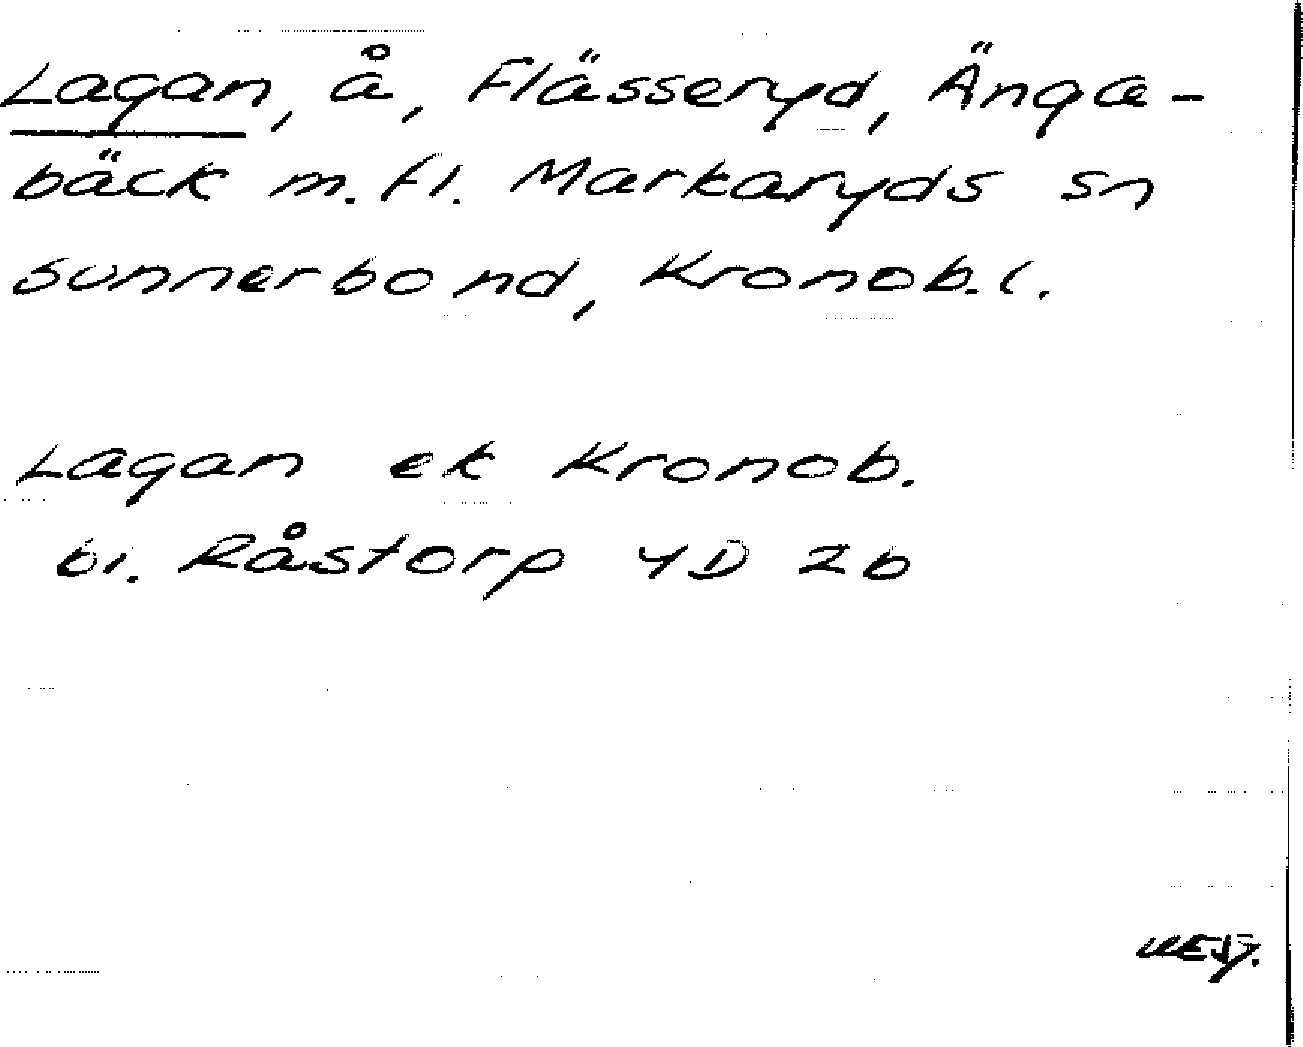 Lagan, å, Flässeryd, Änga-
bäck m.fl. Markaryds sn
Sunnerbo hd, Kronob.l.
Lagan ek Kronob.
bl. Råstorp 4D 2b